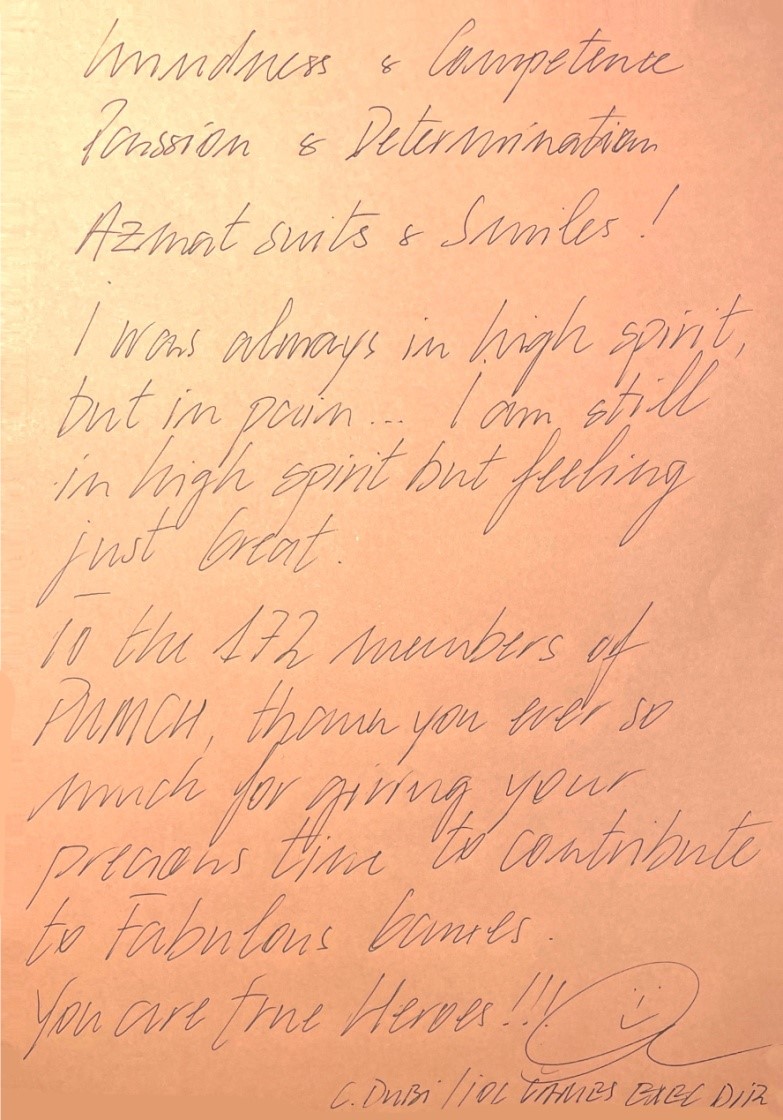 Kindness & Competence
Passion & Determination
Azmat suits & Smiles !
I was always in high spirit,
but in pain... I am still
in high spirit but feeling
just Great.
To the 172 members of
PUMCH, thank you ever so
much for giving your
precious time to contribute
to Fabulous Games.
You are true Heroes!!!
C. DUBI / IOC GAMES EXEC DIR